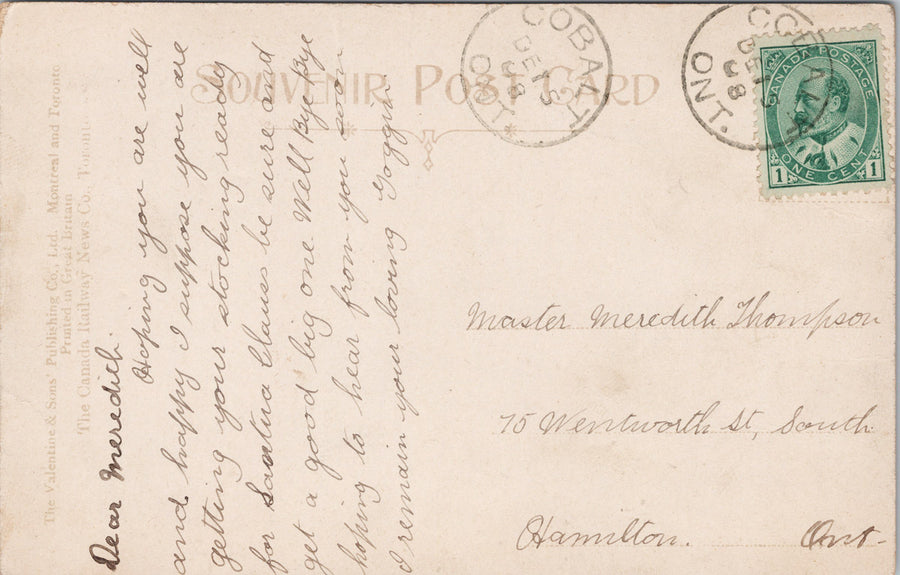 SOUVENIR POST CARD
The Valentine & Sons' Publishing Co., Ltd. Montreal and Toronto
Printed in Great Britain
The Canada Railway News Co., Toronto
COBALT
DE 19
08
ONT.
COBALT
DE 19
08
ONT.
CANADA POSTAGE
ONE CENT
1 1
Dear Meredith
Hoping you are well
and happy I suppose you are
getting your stocking ready
for Santra Claus be sure and
get a good big one Well Bye Bye
hoping to hear from you soon
I remain your loving
Master Meredith Thompson
75 Wentworth St, South
Hamilton. Ont.